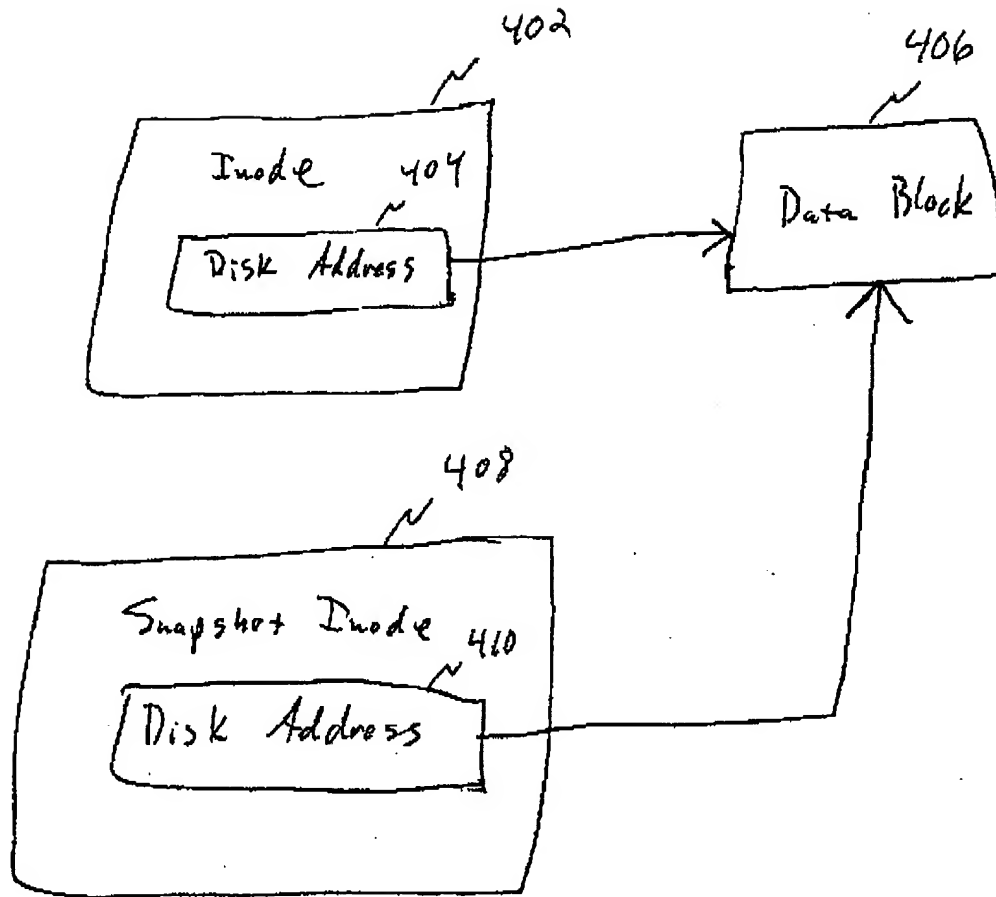 402
406
Inode
404
Disk Address
Data Block
408
Snapshot Inode
410
Disk Address